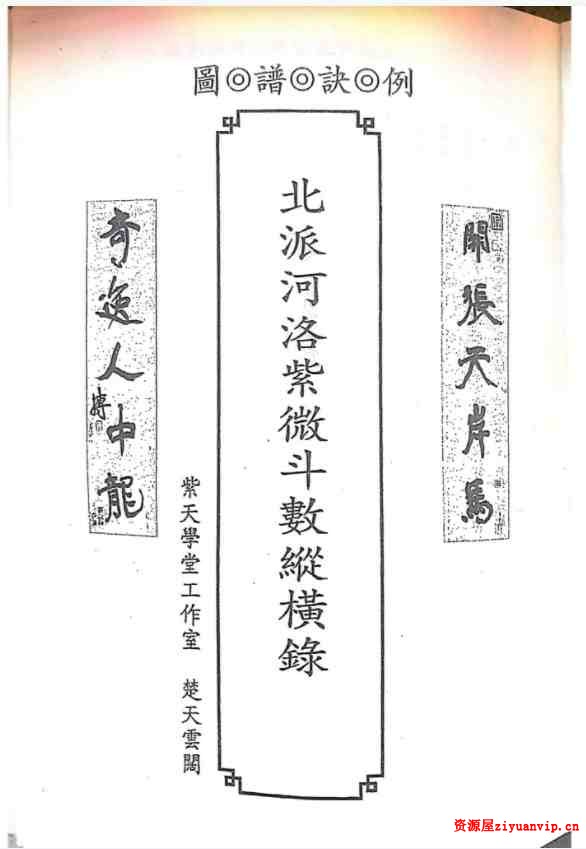 圖◎譜◎訣◎例
開張天岸馬
北派河洛紫微斗數縱橫錄
奇逸人中龍
摶
紫天學堂工作室 楚天雲闊
资源屋ziyuanvip.cn